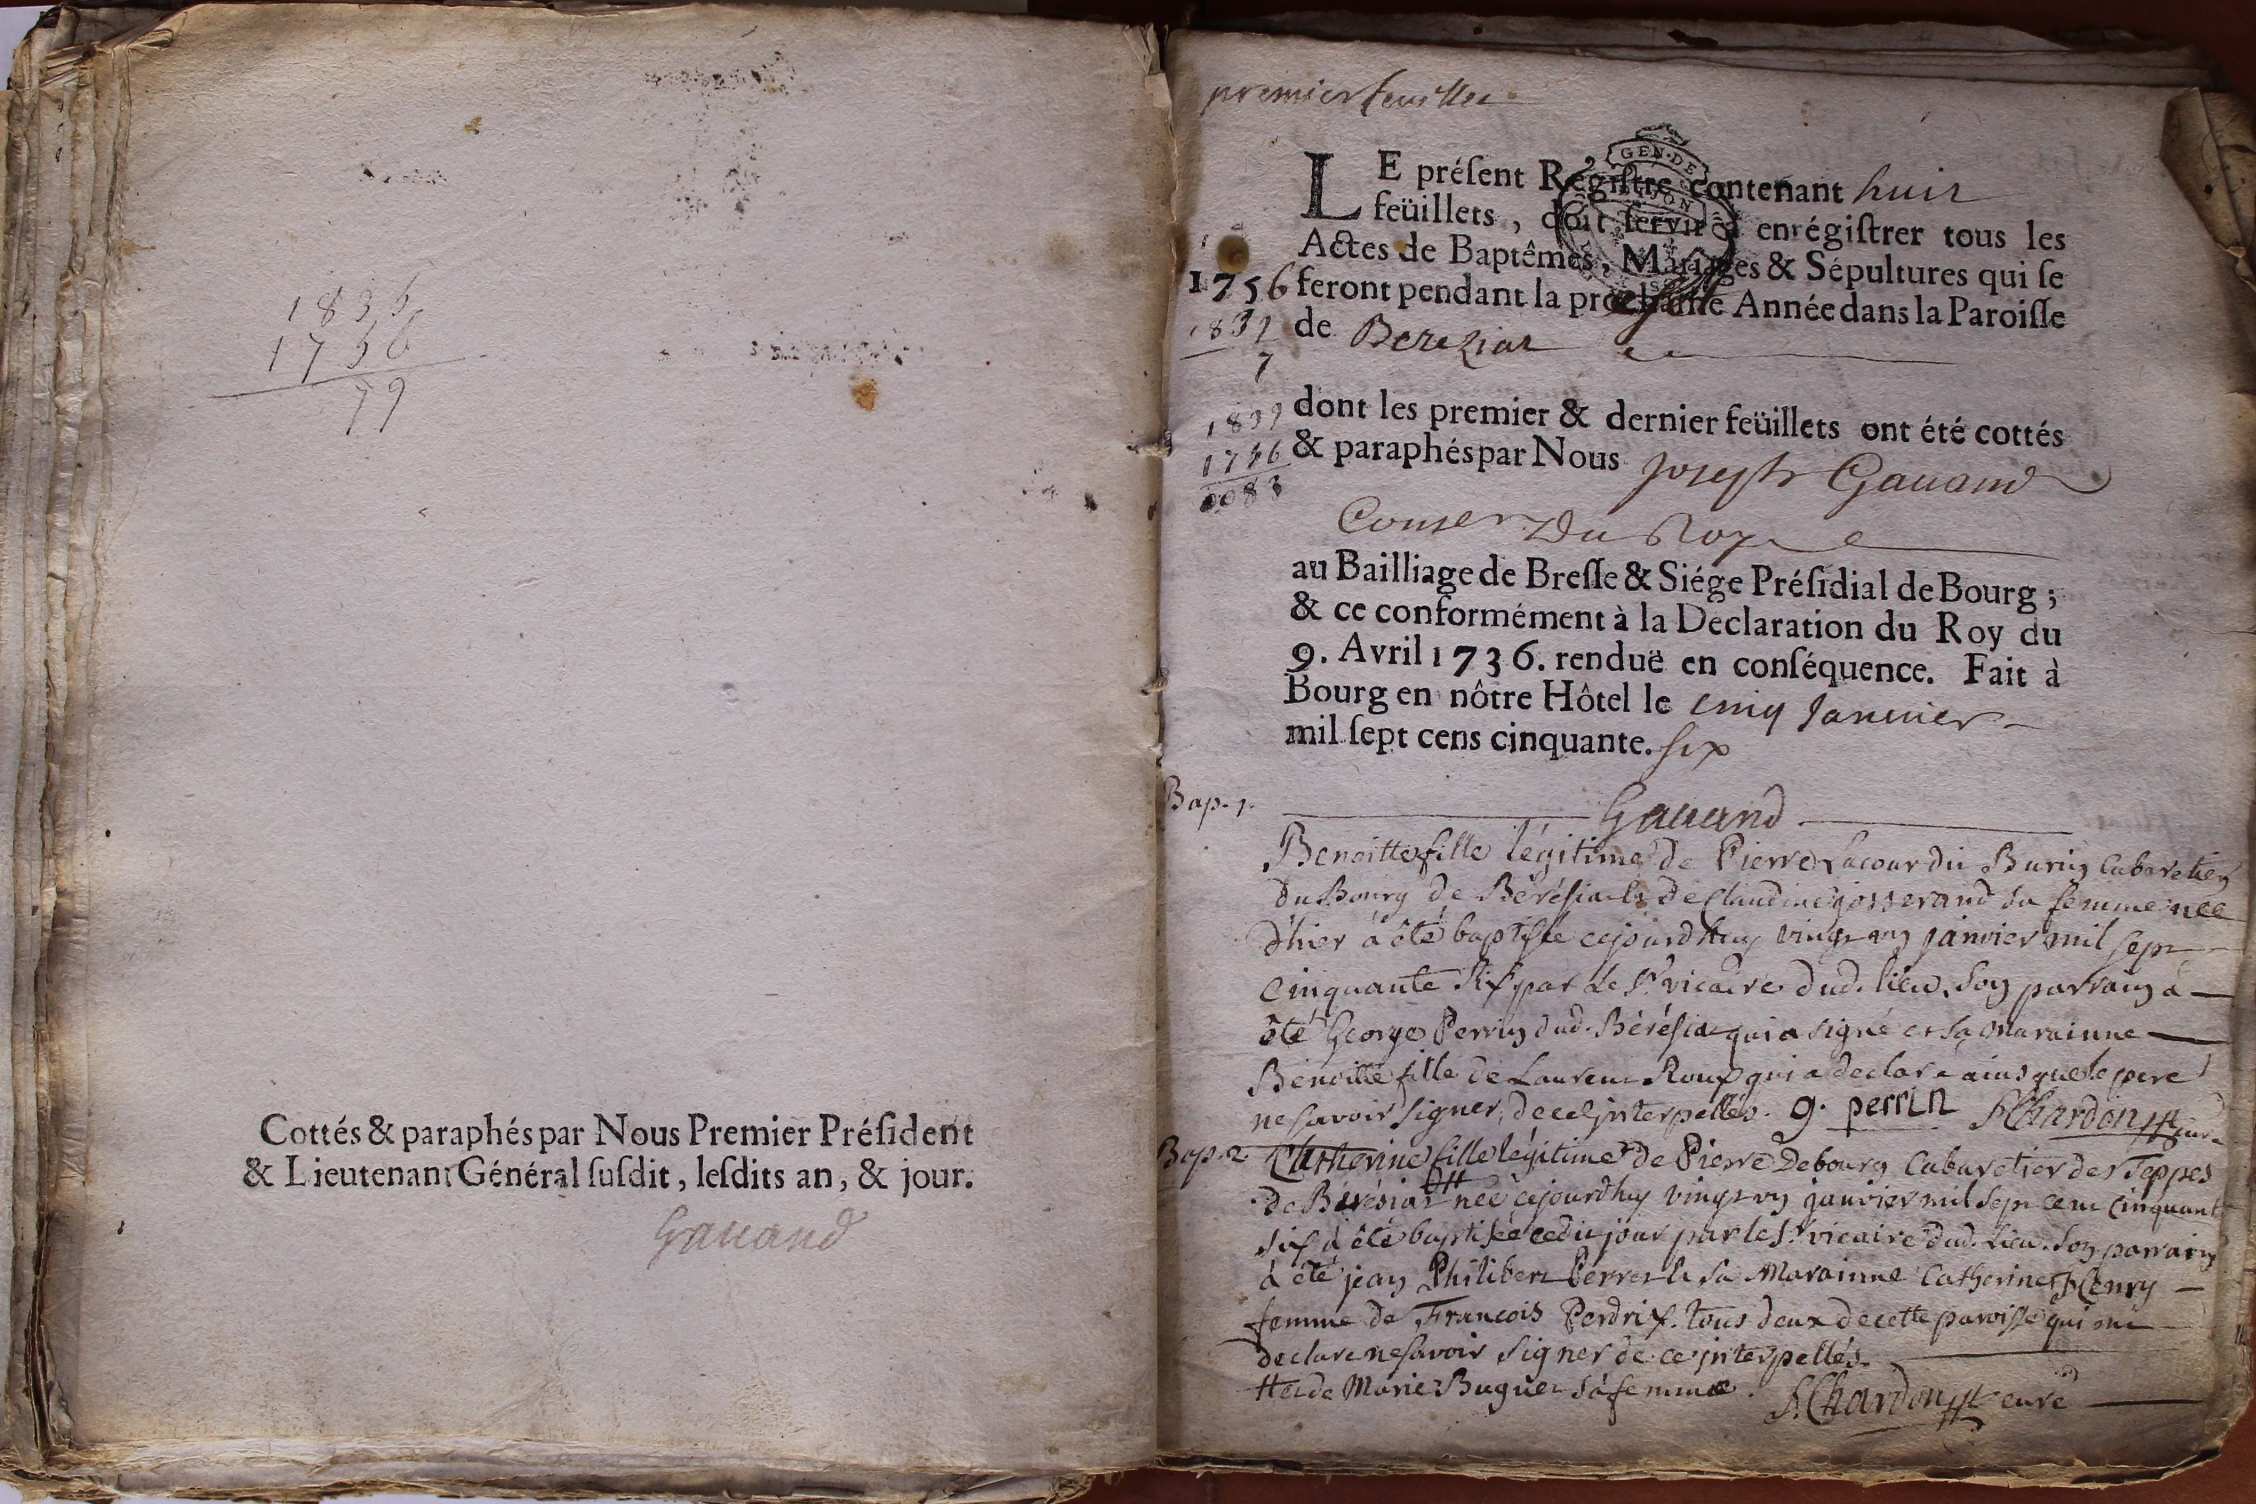 1835
1756
79
Cottés & paraphés par Nous Premier Préſident
& Lieutenant Général ſuſdit, leſdits an, & jour.
Gauand
premier feuillet
GEN. DE
LE préſent Régiſtre contenant huit
feüillets, doit ſervir à enrégiſtrer tous les
Actes de Baptêmes, Mariages & Sépultures qui ſe
feront pendant la prochaine Année dans la Paroiſſe
de Bereziat
1756
1839
7
1839
1756
0083
dont les premier & dernier feüillets ont été cottés
& paraphés par Nous Joseph Gauand
Conser Du Roy
au Bailliage de Breſſe & Siége Préſidial de Bourg ;
& ce conformément à la Declaration du Roy du
9. Avril 1736. renduë en conſéquence. Fait à
Bourg en nôtre Hôtel le cinq Januier
mil ſept cens cinquante. ſix
Gauand
Bap. 1.
Benoitte fille légitime de Pierre Lacour du Burin Cabaretier
du Bourg de Bérésiat & de Claudine josserand sa femme née
d'hier à été baptisée cejourdhuy vingt un janvier mil sept
cinquante six par le Sr vicaire dud. lieu. son parrain à
été George Perrin dud. Bérésiat qui a signé et sa maraine
Benoitte fille de Laurent Roux qui a declaré ainsy que le pere
ne savoir signer, de ce interpellés. g. perrin J. Chardon curé
Bap. 2
Catherine fille légitime de Pierre Debourg Cabaretier des Teppes
de Bérésiat # née cejourdhuy vingt un janvier mil sept cent cinquante
six à été baptisée cedit jour par le Sr vicaire dud. Lieu. son parrain
à été jean Philibert Perret & sa Maraine Catherine Henry
femme de François Perdrix. tous deux de cette paroisse qui ont
declaré ne savoir signer de ce interpellés.
# et de Marie Buguet sa femme. J. Chardon curé